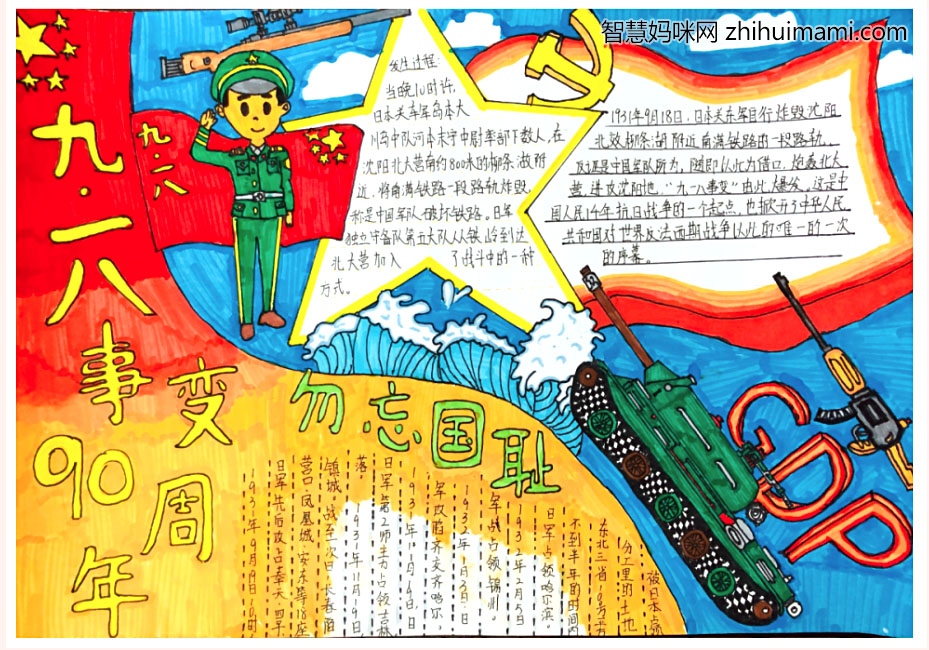 智慧妈咪网 zhihuimami.com
九·一八
事变
90周年
九·一八
勿忘国耻
发生过程:
当晚10时许,
日本关东军岛本大
川岛中队河本末守中尉率部下数人,在
沈阳北大营南约800米的柳条湖附
近,将南满铁路一段路轨炸毁,
称是中国军队破坏铁路。日军
独立守备队第五大队从铁岭到达
北大营加入
了战斗中的一种
方式。
1931年9月18日,日本关东军自行炸毁沈阳
北效柳条湖附近南满铁路的一段路轨,
反诬是中国军队所为,随即以此为借口,炮轰北大
营,进攻沈阳地,“九一八事变”由此爆发。这是中
国人民14年抗日战争的一个起点,也掀开了中华人民
共和国对世界反法西期战争以此的唯一的一次
的序幕。
GDP
被日本占领
分工里的土地
东北三省
不到半年的时间内
日军占领哈尔滨。
1931年2月5日
年战占领锦州。
1932年1月3日,日
年攻陷齐齐哈尔,
1931年11月19日,日
日军第2师主力占领吉林
落。
1931年11月19日,
镇城。战至次日,长春陷
营口、凤凰城、安东等18座
日军先后攻占奉天、四平、